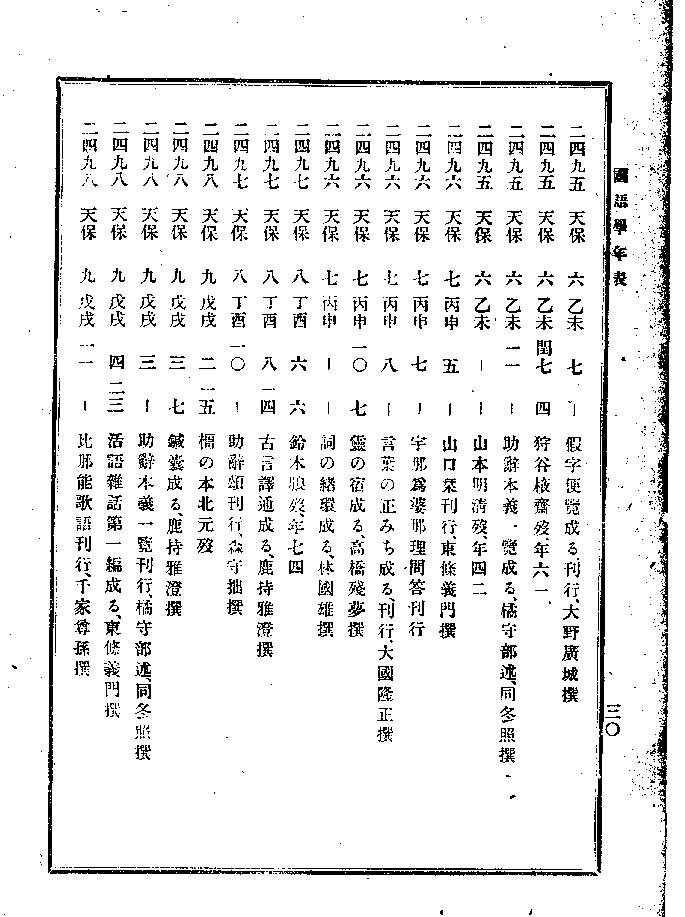 國語學年表
三〇
二四九五 天保 六 乙未 七 ー 假字便覽成る刊行、大野廣城撰
二四九五 天保 六 乙未 閏七 四 狩谷棭齋歿年六一、
二四九五 天保 六 乙未 一一 ー 助辭本義一覽成る、橘守部述、同冬照撰
二四九五 天保 六 乙未 ー ー 山本明淸歿、年四二
二四九六 天保 七 丙申 五 ー 山口栞刊行、東條義門撰
二四九六 天保 七 丙申 七 ー 宇那爲婆那理問答刊行
二四九六 天保 七 丙申 八 ー 言葉の正みち成る、刊行、大國隆正撰
二四九六 天保 七 丙申 一〇 七 靈の宿成る、高橋殘夢撰
二四九六 天保 七 丙申 ー ー 詞の緖環成る、林國雄撰
二四九七 天保 八 丁酉 六 六 鈴木朖歿、年七四
二四九七 天保 八 丁酉 八 一四 古言譯通成る、鹿持雅澄撰
二四九七 天保 八 丁酉 一〇 ー 助辭類刊行、森守拙撰
二四九八 天保 九 戊戌 二 一五 の本北元歿
二四九八 天保 九 戊戌 三 七 鍼囊成る、鹿持雅澄撰
二四九八 天保 九 戊戌 三 ー 助辭本義一覽刊行、橘守部述、同冬照撰
二四九八 天保 九 戊戌 四 二三 活語雜話第一編成る、東條義門撰
二四九八 天保 九 戊戌 一一 ー 比那能歌語刊行、千家尊孫撰